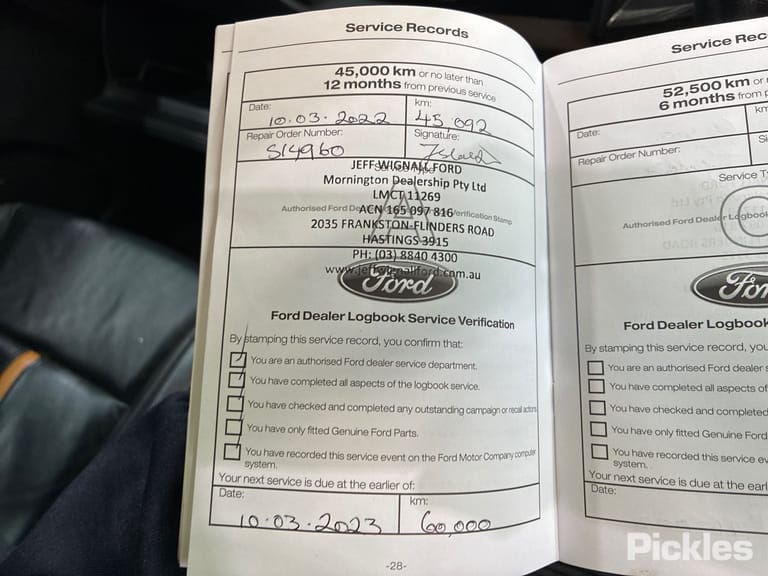 Service Records
45,000 km or no later than
12 months from previous service
Date:
10.03.2022
km:
45 092
Repair Order Number:
S14960
Signature:
JEFF WIGNALL FORD
Mornington Dealership Pty Ltd
LMCT 11269
Authorised Ford Verification Stamp
ACN 165 097 816
2035 FRANKSTON-FLINDERS ROAD
HASTINGS 3915
PH: (03) 8840 4300
www.jeffwignallford.com.au
Ford
Ford Dealer Logbook Service Verification
By stamping this service record, you confirm that:
You are an authorised Ford dealer service department.
You have completed all aspects of the logbook service.
You have checked and completed any outstanding campaign or recall actions
You have only fitted Genuine Ford Parts.
You have recorded this service event on the Ford Motor Company computer
system.
Your next service is due at the earlier of:
Date:
10.03.2023
km:
60,000
-28-
Service Rec
52,500 km or
6 months from p
Date:
km
Repair Order Number:
Si
Service T
Authorised Ford Dealer Logbook
For
Ford Dealer Logbo
By stamping this service record, you
You are an authorised Ford dealer s
You have completed all aspects of
You have checked and completed
You have only fitted Genuine Ford
You have recorded this service ev
system.
Your next service is due at the earl
Date:
Pickles